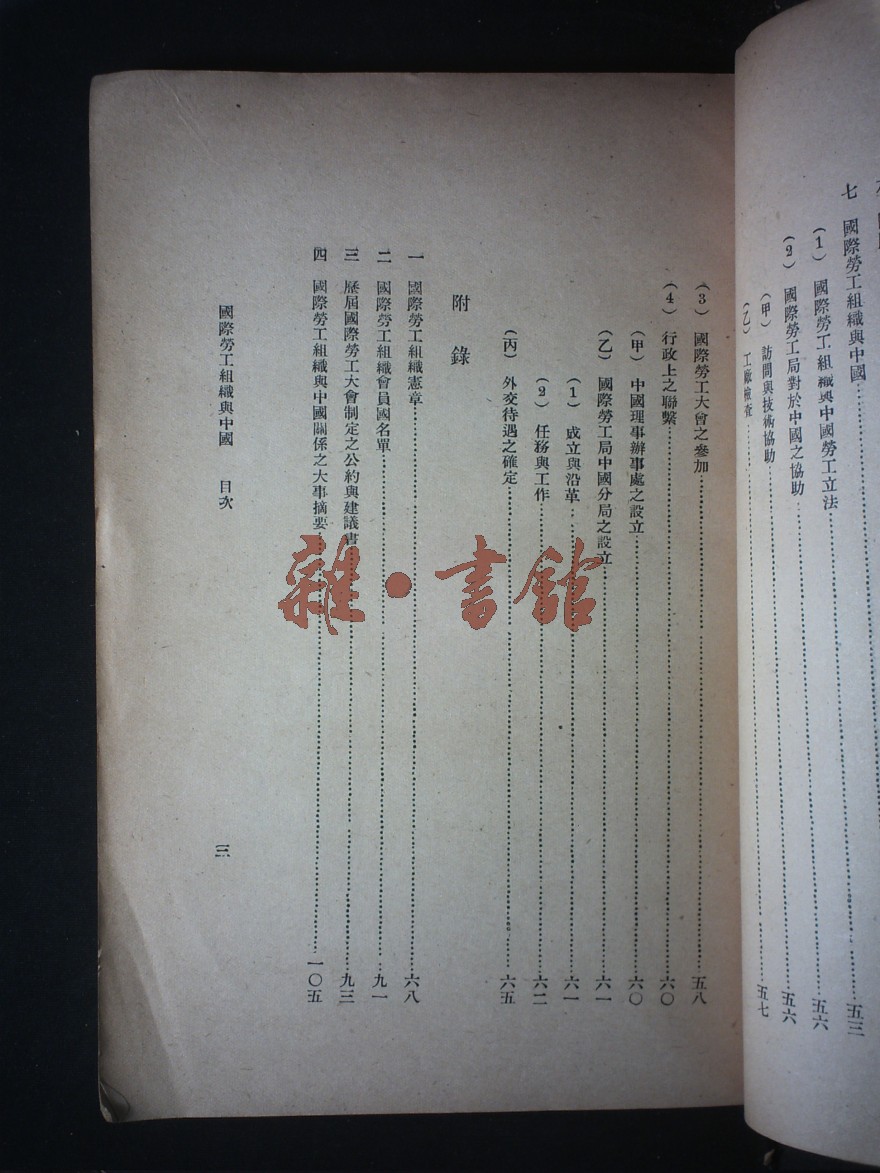 七　國際勞工組織與中國……五三
（1）國際勞工組織與中國勞工立法……五六
（2）國際勞工局對於中國之協助……五六
（甲）訪問與技術協助……五七
（乙）工廠檢查……
（3）國際勞工大會之參加……五八
（4）行政上之聯繫……六〇
（甲）中國理事辦事處之設立……六〇
（乙）國際勞工局中國分局之設立……六一
（1）成立與沿革……六一
（2）任務與工作……六二
（丙）外交待遇之確定……六五
附錄
一　國際勞工組織憲章……六八
二　國際勞工組織會員國名單……九一
三　歷屆國際勞工大會制定之公約與建議書……九三
四　國際勞工組織與中國關係之大事摘要……一〇五
國際勞工組織與中國　目次
三
雜·書館